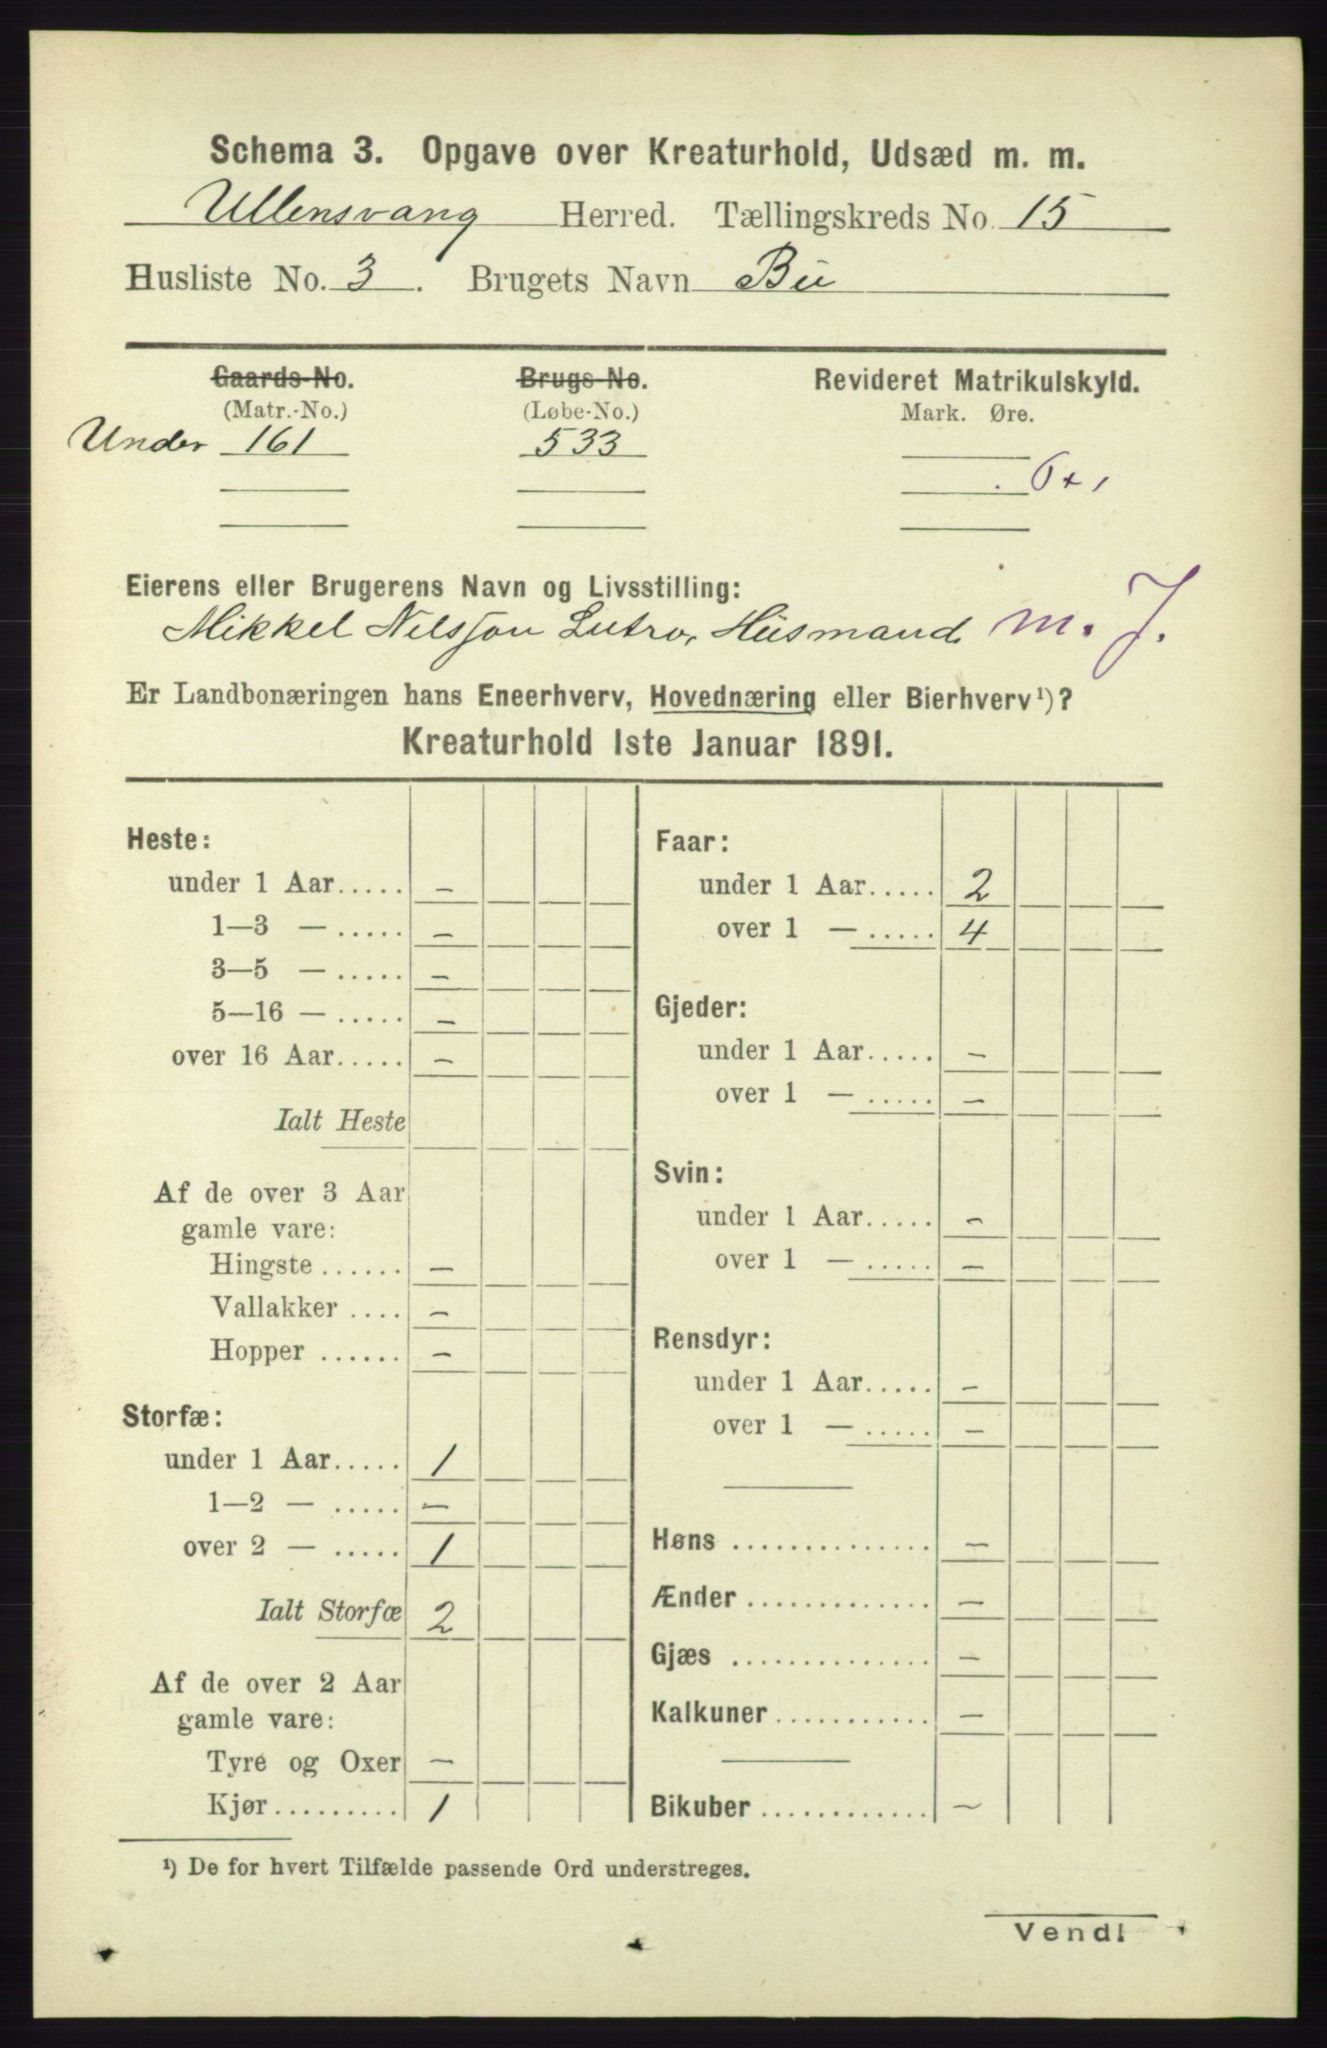 Schema 3. Opgave over Kreaturhold, Udsæd m. m.
Ullensvang Herred. Tællingskreds No. 15
Husliste No. 3. Brugets Navn Bu
Gaards-No. Brugs-No. Revideret Matrikulskyld.
(Matr.-No.) (Løbe-No.) Mark. Øre.
Under 161 533
Eierens eller Brugerens Navn og Livsstilling:
Mikkel Nilsson Lutro, Husmand m. J.
Er Landbonæringen hans Eneerhverv, Hovednæring eller Bierhverv¹)?
Kreaturhold 1ste Januar 1891.
Heste:
under 1 Aar..... –
1–3 — ..... –
3–5 — ..... –
5–16 — ..... –
over 16 Aar..... –
Ialt Heste
Af de over 3 Aar
gamle vare:
Hingste ...... –
Vallakker .... –
Hopper ...... –
Storfæ:
under 1 Aar..... 1
1–2 — ..... –
over 2 — ..... 1
Ialt Storfæ 2
Af de over 2 Aar
gamle vare:
Tyre og Oxer –
Kjør......... 1
Faar:
under 1 Aar..... 2
over 1 — ..... 4
Gjeder:
under 1 Aar..... –
over 1 — ..... –
Svin:
under 1 Aar..... –
over 1 — ..... –
Rensdyr:
under 1 Aar..... –
over 1 — ..... –
Høns .............. –
Ænder ............. –
Gjæs .............. –
Kalkuner ........... –
Bikuber ............ –
¹) De for hvert Tilfælde passende Ord understreges.
Vend!